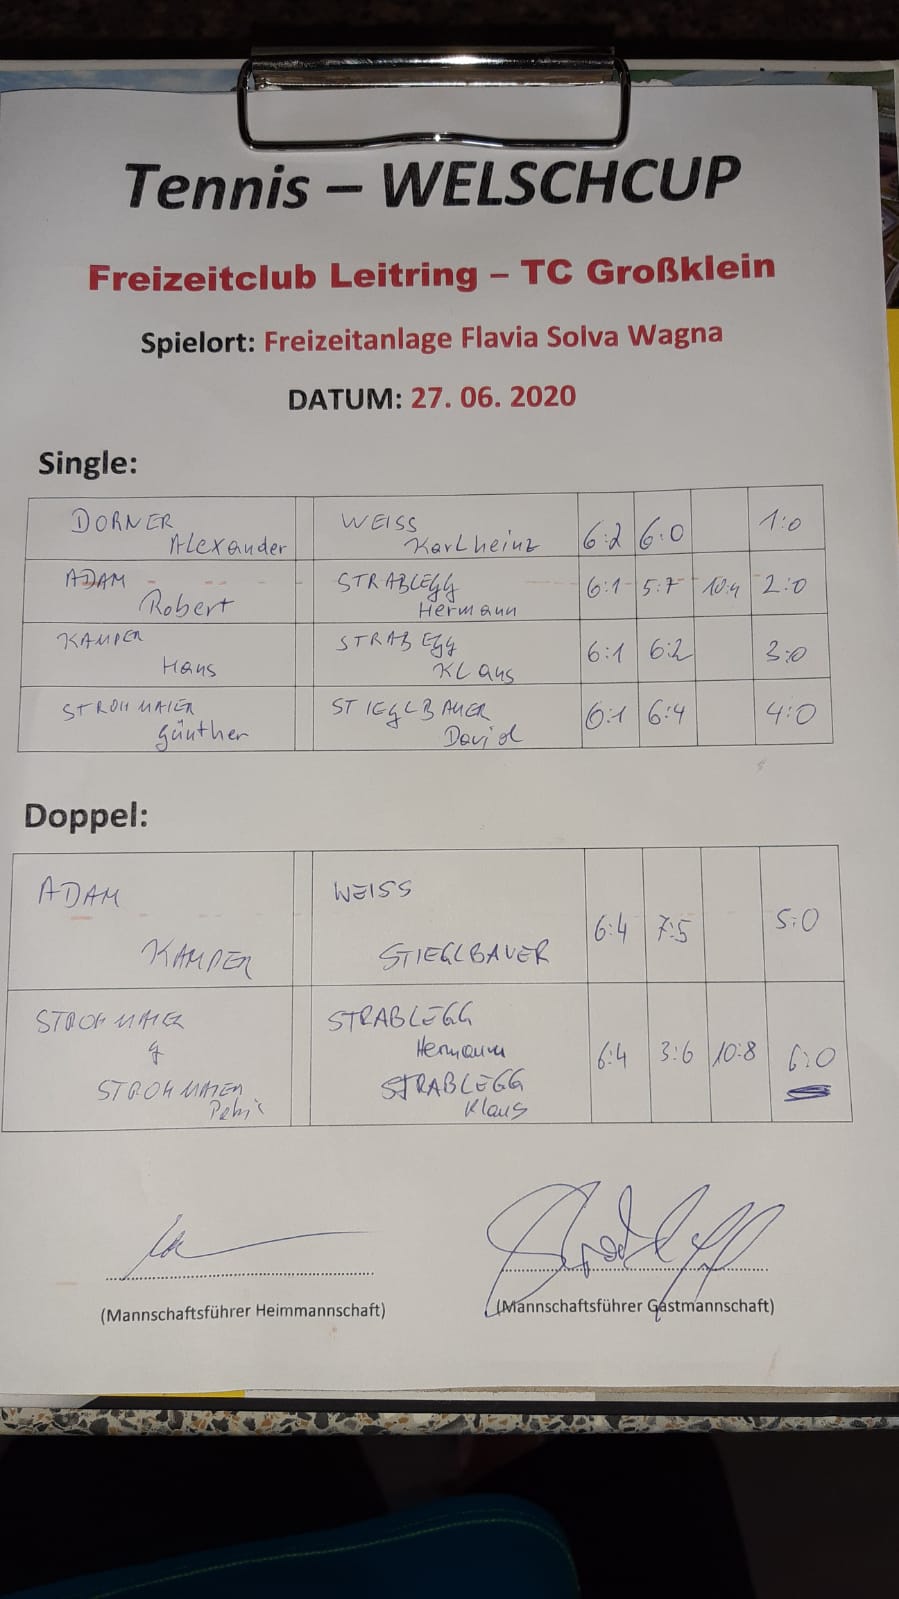 Tennis – WELSCHCUP
Freizeitclub Leitring – TC Großklein
Spielort: Freizeitanlage Flavia Solva Wagna
DATUM: 27. 06. 2020
Single:
DORNER Alexander WEISS Karlheinz 6:2 6:0 1:0
ADAM Robert STRABLEGG Hermann 6:1 5:7 10:4 2:0
KAMPER Hans STRABLEGG Klaus 6:1 6:2 3:0
STROHMAIER Günther STIEGLBAUER David 6:1 6:4 4:0
Doppel:
ADAM WEISS
KAMPER STIEGLBAUER 6:4 7:5 5:0
STROHMAIER STRABLEGG
g Hermann 6:4 3:6 10:8 6:0
STROHMAIER STRABLEGG
Klaus
(Mannschaftsführer Heimmannschaft) (Mannschaftsführer Gastmannschaft)